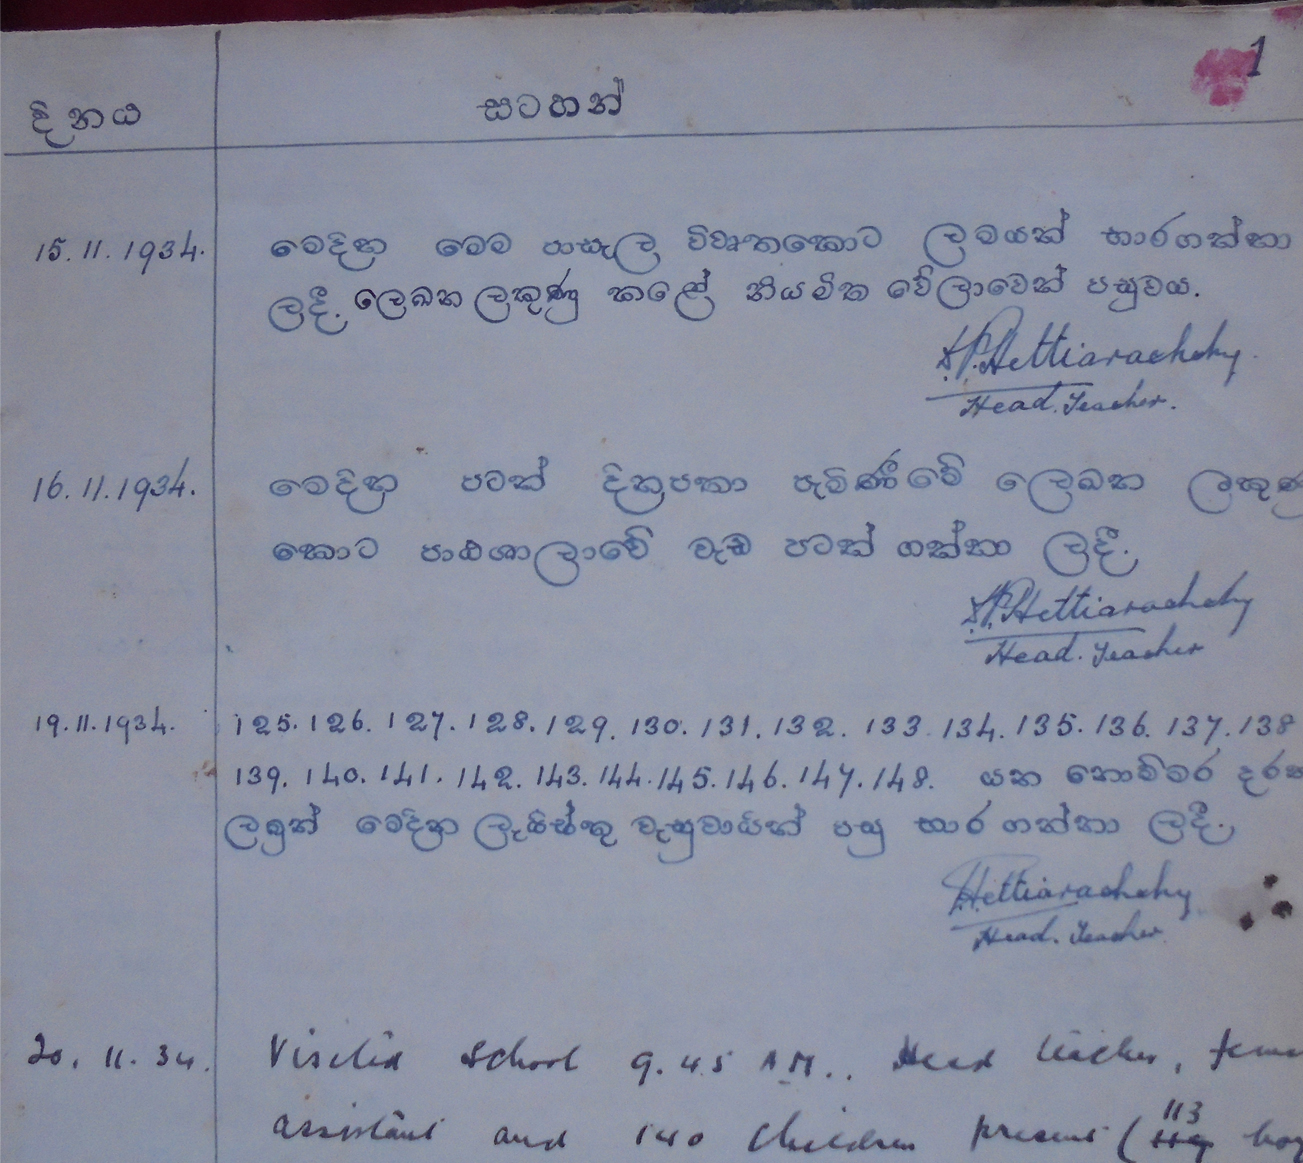 1
දිනය සටහන්
15.11.1934. මෙදින මෙම පාසැල විවෘතකොට ළමයන් භාරගන්නා
ලදී. ලෙඛන ලකුණු කළේ නියමිත වේලාවෙන් පසුවය.
D.P.Hettiarachchy.
Head.Teacher.
16.11.1934. මෙදින පටන් දිනපතා පැමිණීමේ ලෙඛන ලකුණු
කොට පාඨශාලාවේ වැඩ පටන් ගන්නා ලදී.
D.P.Hettiarachchy
Head.Teacher
19.11.1934. 125. 126. 127. 128. 129. 130. 131. 132. 133 134. 135. 136. 137. 138
139. 140. 141. 142. 143. 144. 145. 146. 147. 148. යන නොම්මර දරන
ළමුන් මෙදින ලැයිස්තු වැසුවායින් පසු භාර ගන්නා ලදී.
Hettiarachchy
Head. Teacher
20. 11. 34. Visited school 9.45 A.M.. Head teacher,
assistant and 140 children present (113